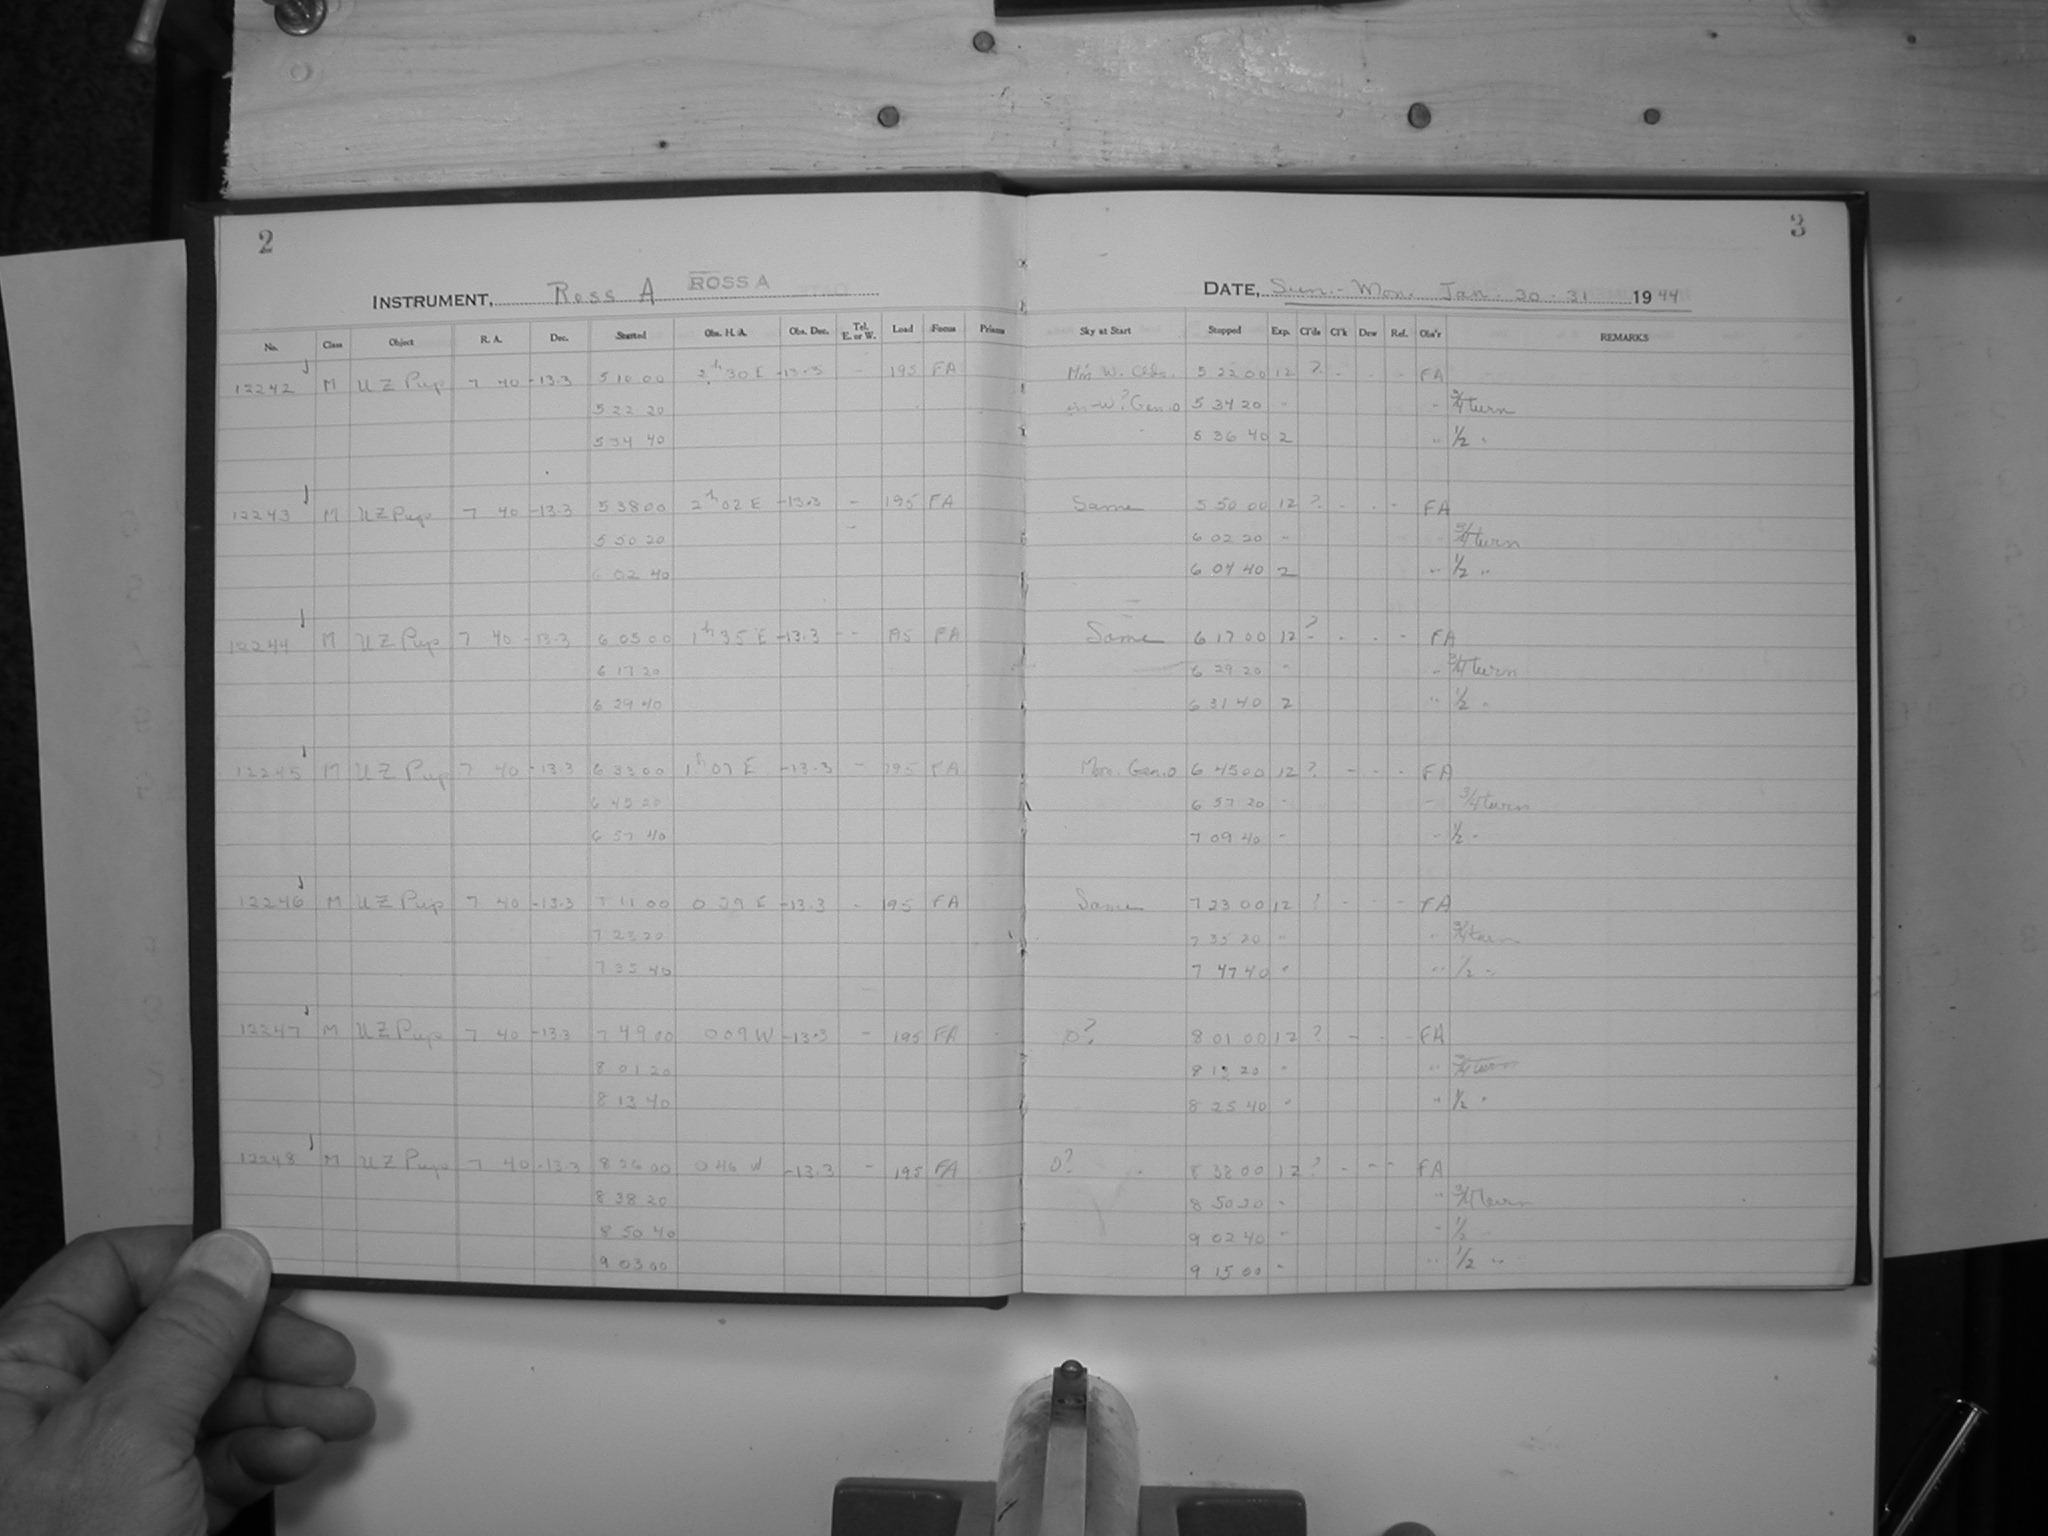 2
INSTRUMENT, Ross A ROSS A
No. Class Object R. A. Dec. Started Obs. H. A. Obs. Dec. Tel. E. or W. Load Focus Prisms
12242 M UZ Pup 7 40 -13.3 5 10 00 2h 30 E -13.3 - 195 FA
5 22 20
5 34 40
12243 M UZ Pup 7 40 -13.3 5 38 00 2h 02 E -13.3 - 195 FA
5 50 20
6 02 40
12244 M UZ Pup 7 40 -13.3 6 05 00 1h 35 E -13.3 - 195 FA
6 17 20
6 29 40
12245 M UZ Pup 7 40 -13.3 6 33 00 1h 07 E -13.3 - 195 FA
6 45 20
6 57 40
12246 M UZ Pup 7 40 -13.3 7 11 00 0 29 E -13.3 - 195 FA
7 23 20
7 35 40
12247 M UZ Pup 7 40 -13.3 7 49 00 0 09 W -13.3 - 195 FA
8 01 20
8 13 40
12248 M UZ Pup 7 40 -13.3 8 26 00 0 46 W -13.3 - 195 FA
8 38 20
8 50 40
9 03 00
3
DATE, Sun. - Mon. Jan. 30 - 31 1944
Sky at Start Stopped Exp. Cl'ds Cl'k Dew Ref. Obs'r REMARKS
W. Clds. 5 22 00 12 ? - - - FA
Gen. 0 5 34 20 " " 3/4 turn
5 36 40 2 " 1/2 "
Same 5 50 00 12 ? - - - FA
6 02 20 " 3/4 turn
6 04 40 2 " 1/2 "
Same 6 17 00 12 ? - - - FA
6 29 20 " " 3/4 turn
6 31 40 2 " 1/2 "
Moo. Gen. 0 6 45 00 12 ? - - - FA
6 57 20 " " 3/4 turn
7 09 40 " " 1/2 "
Same 7 23 00 12 ? - - - FA
7 35 20 " " 3/4 turn
7 47 40 " " 1/2 "
0? 8 01 00 12 ? - - - FA
8 13 20 " " 3/4 turn
8 25 40 " " 1/2 "
0? 8 38 00 12 ? - - - FA
8 50 20 " " 3/4 turn
9 02 40 " " 1/2 "
9 15 00 " " 1/2 "